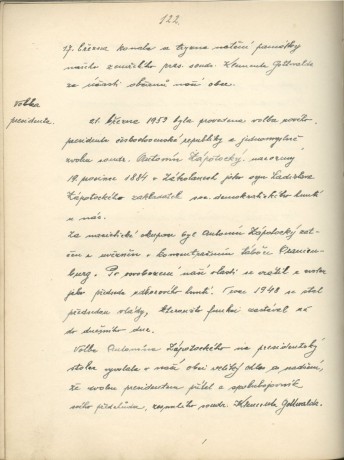 122
17. března konala se tryzna uctění památky
našeho zemřelého pres. soudr. Klementa Gottwalda
za účasti občanů naší obce.
Volba
presidenta.
21. března 1953 byla provedena volba nového
presidenta československé republiky a jednomyslně
zvolen soudr. Antonín Zápotocký, narozený
19. prosince 1884 v Zákolanech jako syn Ladislava
Zápotockého zakladatele soc. demokratického hnutí
u nás.
Za nacistické okupace byl Antonín Zápotocký
a vězněn v koncentračním táboře Oranien-
burg. Po osvobození naší vlasti se vrátil a zvolen
jako předseda odborového hnutí. V roce 1948 se stal
předsedou vlády, kteroužto funkci zastával až
do dnešního dne.
Volba Antonína Zápotockého na presidentský
stolec vyvolala v naší obci veliký ohlas a nadšení,
že zvolen presidentem přítel a spolubojovník
svého předchůdce, zesnulého soudr. Klementa Gottwalda.